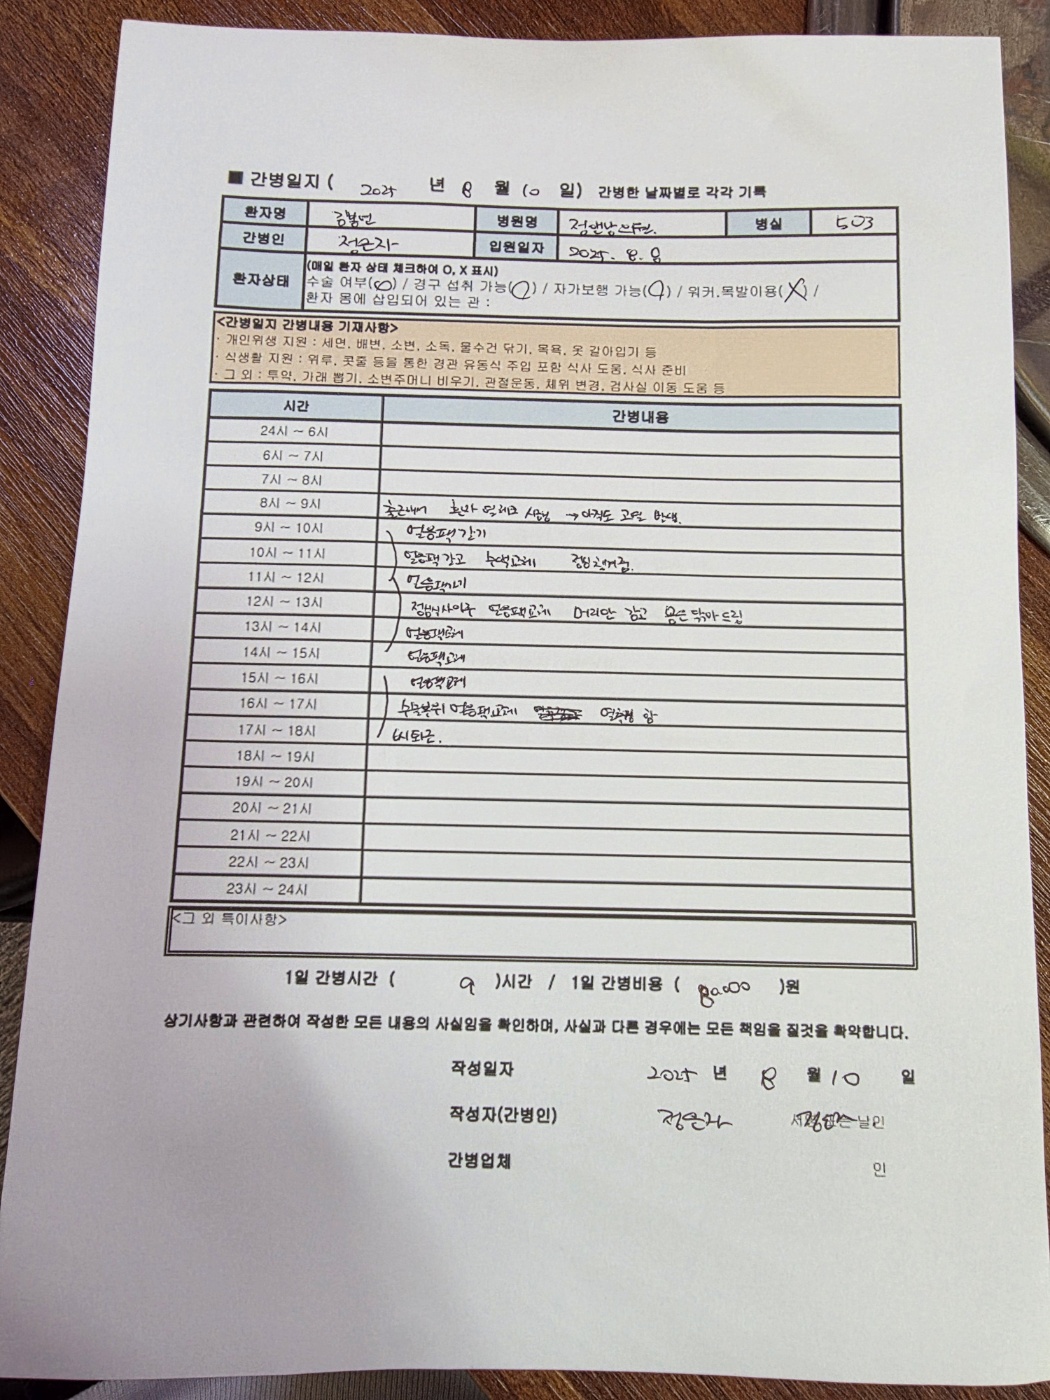 ■ 간병일지 ( 2025 년 8 월 10 일) 간병한 날짜별로 각각 기록
환자명 병원명 병실 503
간병인 정은자 입원일자 2025. 8. 8
환자상태 (매일 환자 상태 체크하여 O, X 표시)
수술 여부(O) / 경구 섭취 가능(O) / 자가보행 가능(O) / 워커.목발이용(X) /
환자 몸에 삽입되어 있는 관 :
<간병일지 간병내용 기재사항>
· 개인위생 지원 : 세면, 배변, 소변, 소독, 물수건 닦기, 목욕, 옷 갈아입기 등
· 식생활 지원 : 위루, 콧줄 등을 통한 경관 유동식 주입 포함 식사 도움, 식사 준비
· 그 외 : 투약, 가래 뽑기, 소변주머니 비우기, 관절운동, 체위 변경, 검사실 이동 도움 등
시간 간병내용
24시 ~ 6시
6시 ~ 7시
7시 ~ 8시
8시 ~ 9시 환자 열체크 → 아직도 고열 발생.
9시 ~ 10시 얼음팩 갈기
10시 ~ 11시 얼음팩 갈고 수액교체
11시 ~ 12시 얼음팩갈기
12시 ~ 13시 점심식사이후 얼음팩교체 머리만 감고 몸은 닦아드림
13시 ~ 14시 얼음팩교체
14시 ~ 15시 얼음팩교체
15시 ~ 16시 얼음팩교체
16시 ~ 17시 수술부위 얼음팩교체 열측정 함
17시 ~ 18시 6시퇴근.
18시 ~ 19시
19시 ~ 20시
20시 ~ 21시
21시 ~ 22시
22시 ~ 23시
23시 ~ 24시
<그 외 특이사항>
1일 간병시간 ( 9 )시간 / 1일 간병비용 ( 80000 )원
상기사항과 관련하여 작성한 모든 내용의 사실임을 확인하며, 사실과 다른 경우에는 모든 책임을 질것을 확약합니다.
작성일자 2025 년 8 월 10 일
작성자(간병인) 정은자 서명 또는 날인
간병업체 인